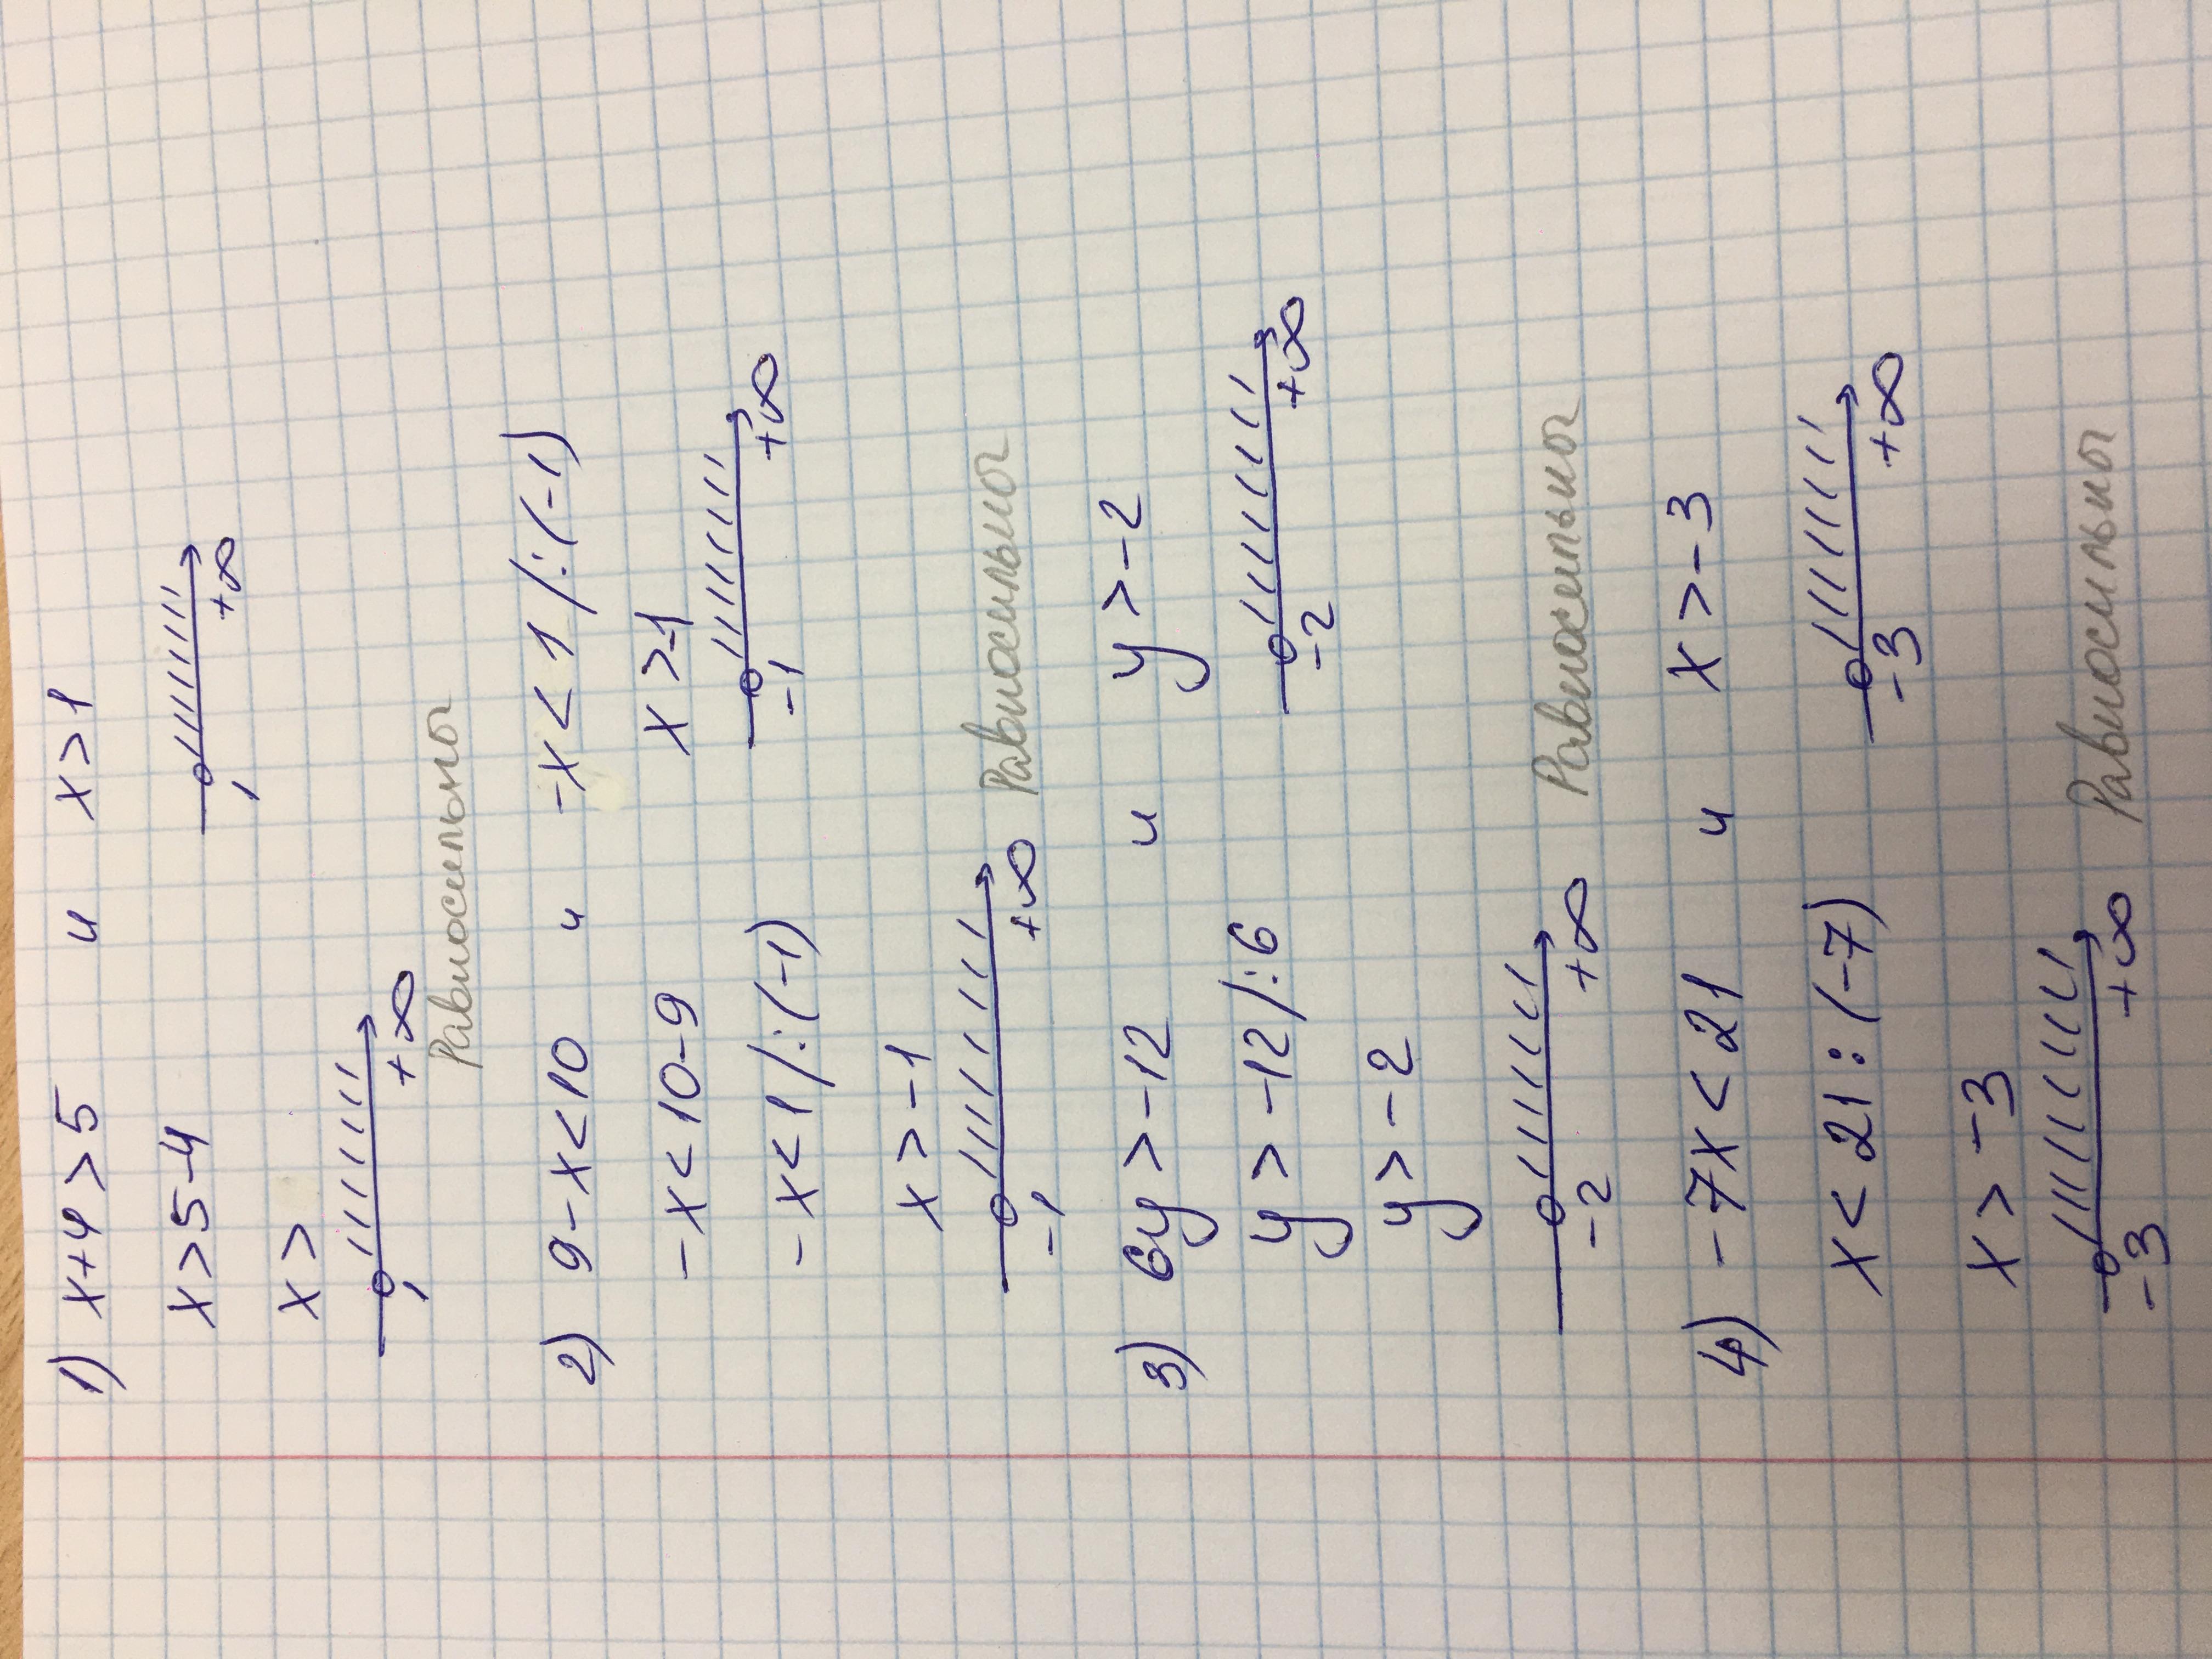 1) x+4>5 и x>1
x>5-4
1 +∞
x>
1 +∞
Равносильны
2) 9-x<10 и -x<1 /:(-1)
-x<10-9 x>-1
-x<1 /:(-1) -1 +∞
x>-1
-1 +∞ Равносильны
3) 6y>-12 и y>-2
y>-12/:6 -2 +∞
y>-2
-2 +∞ Равносильны
4) -7x<21 и x>-3
x<21:(-7) -3 +∞
x>-3
-3 +∞ Равносильны